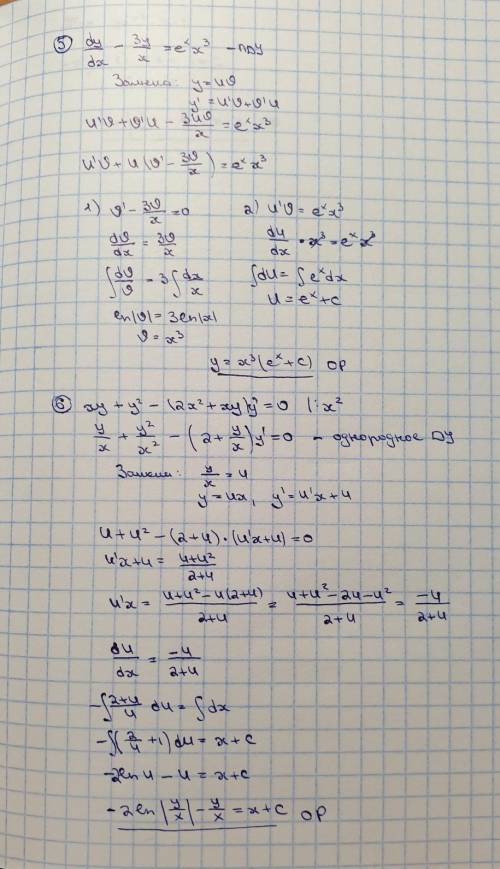 5) dy/dx - 3y/x = e^x x^3 - ЛДУ
Замена: y = uϑ
y' = u'ϑ + ϑ'u
u'ϑ + ϑ'u - 3uϑ/x = e^x x^3
u'ϑ + u(ϑ' - 3ϑ/x) = e^x x^3
1) ϑ' - 3ϑ/x = 0
dϑ/dx = 3ϑ/x
∫dϑ/ϑ = 3∫dx/x
ln|ϑ| = 3ln|x|
ϑ = x^3
2) u'ϑ = e^x x^3
du/dx • x^3 = e^x x^3
∫du = ∫e^x dx
u = e^x + c
y = x^3(e^x + c) ОР
6) xy + y^2 - (2x^2 + xy)y' = 0 |: x^2
y/x + y^2/x^2 - (2 + y/x)y' = 0 - однородное ДУ
Замена: y/x = u
y = ux, y' = u'x + u
u + u^2 - (2+u)•(u'x+u) = 0
u'x + u = (u+u^2)/(2+u)
u'x = (u+u^2-u(2+u))/(2+u) = (u+u^2-2u-u^2)/(2+u) = -u/(2+u)
du/dx = -u/(2+u)
-∫(2+u)/u du = ∫dx
-∫(2/u + 1)du = x + c
-2ln u - u = x + c
-2ln|y/x| - y/x = x + c ОР